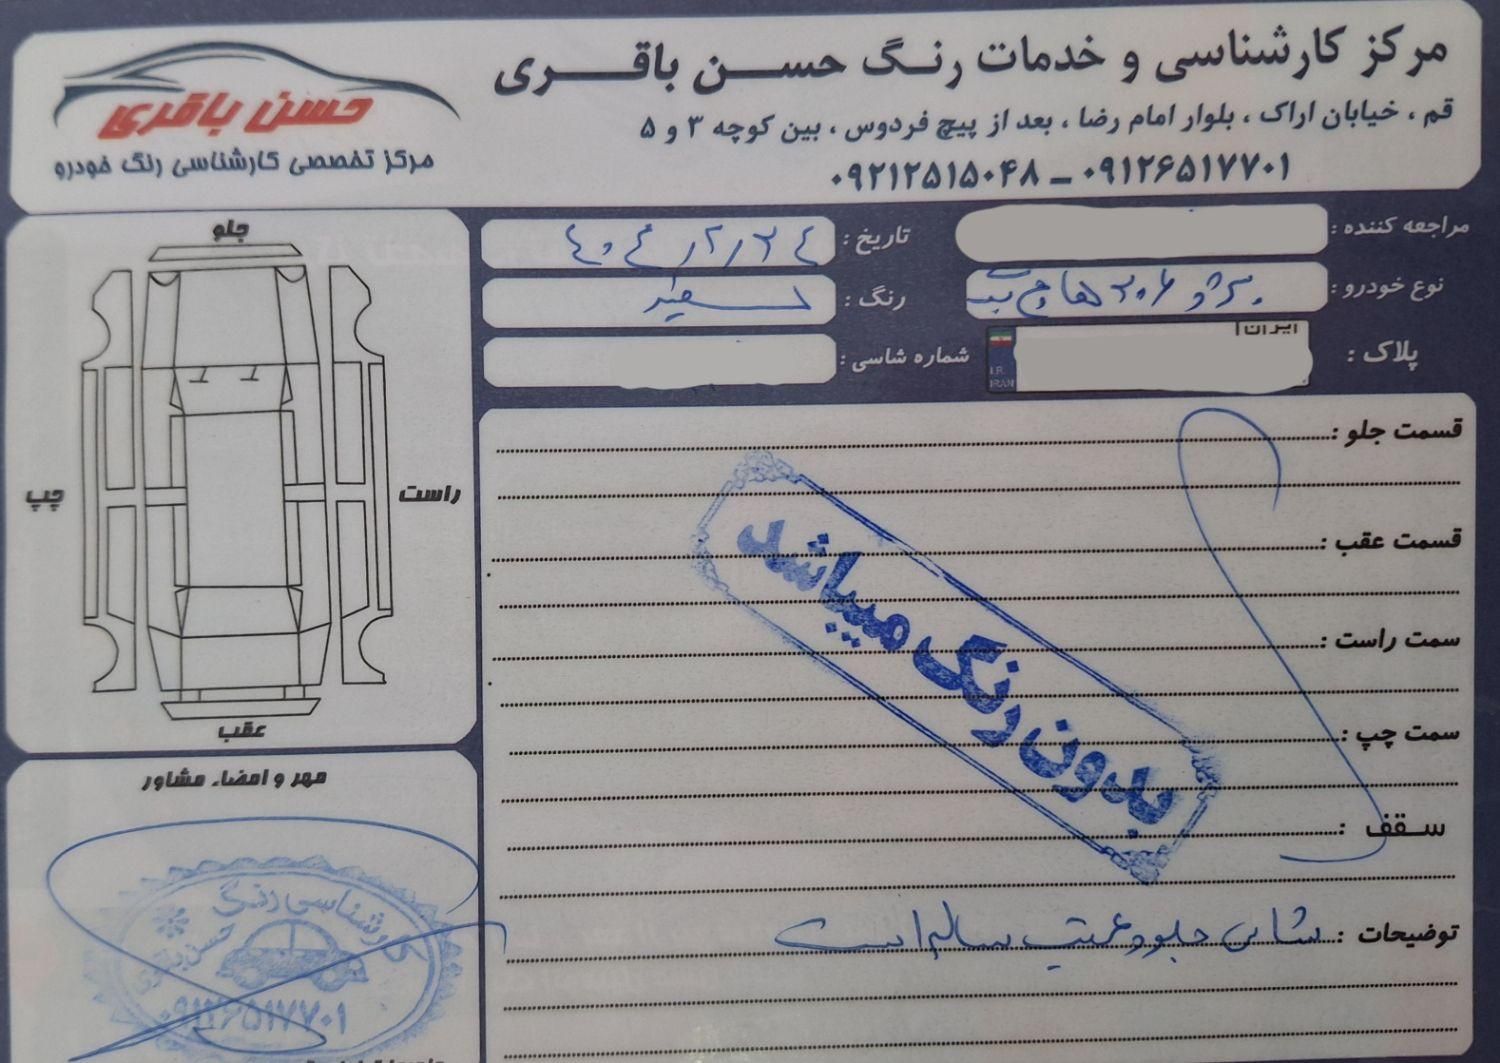 مرکز کارشناسی و خدمات رنگ حسن باقری
قم ، خیابان اراک ، بلوار امام رضا ، بعد از پیچ فردوس ، بین کوچه ۳ و ۵
۰۹۱۲۶۵۱۷۷۰۱ - ۰۹۲۱۲۵۱۵۰۴۸
حسن باقری
مرکز تخصصی کارشناسی رنگ خودرو
مراجعه کننده :
تاریخ : ۴۰۴/۲/۲۴
نوع خودرو : پژو ۲۰۶ هاچ بک
رنگ : سفید
پلاک :
ایران
I.R.
IRAN
شماره شاسی :
جلو
راست
چپ
عقب
قسمت جلو :
قسمت عقب :
سمت راست :
سمت چپ :
سقف :
بدون رنگ میباشد
توضیحات : شاسی جلو و عقب سالم است
مهر و امضاء مشاور
کارشناسی رنگ
حسن باقری
۰۹۱۲۶۵۱۷۷۰۱